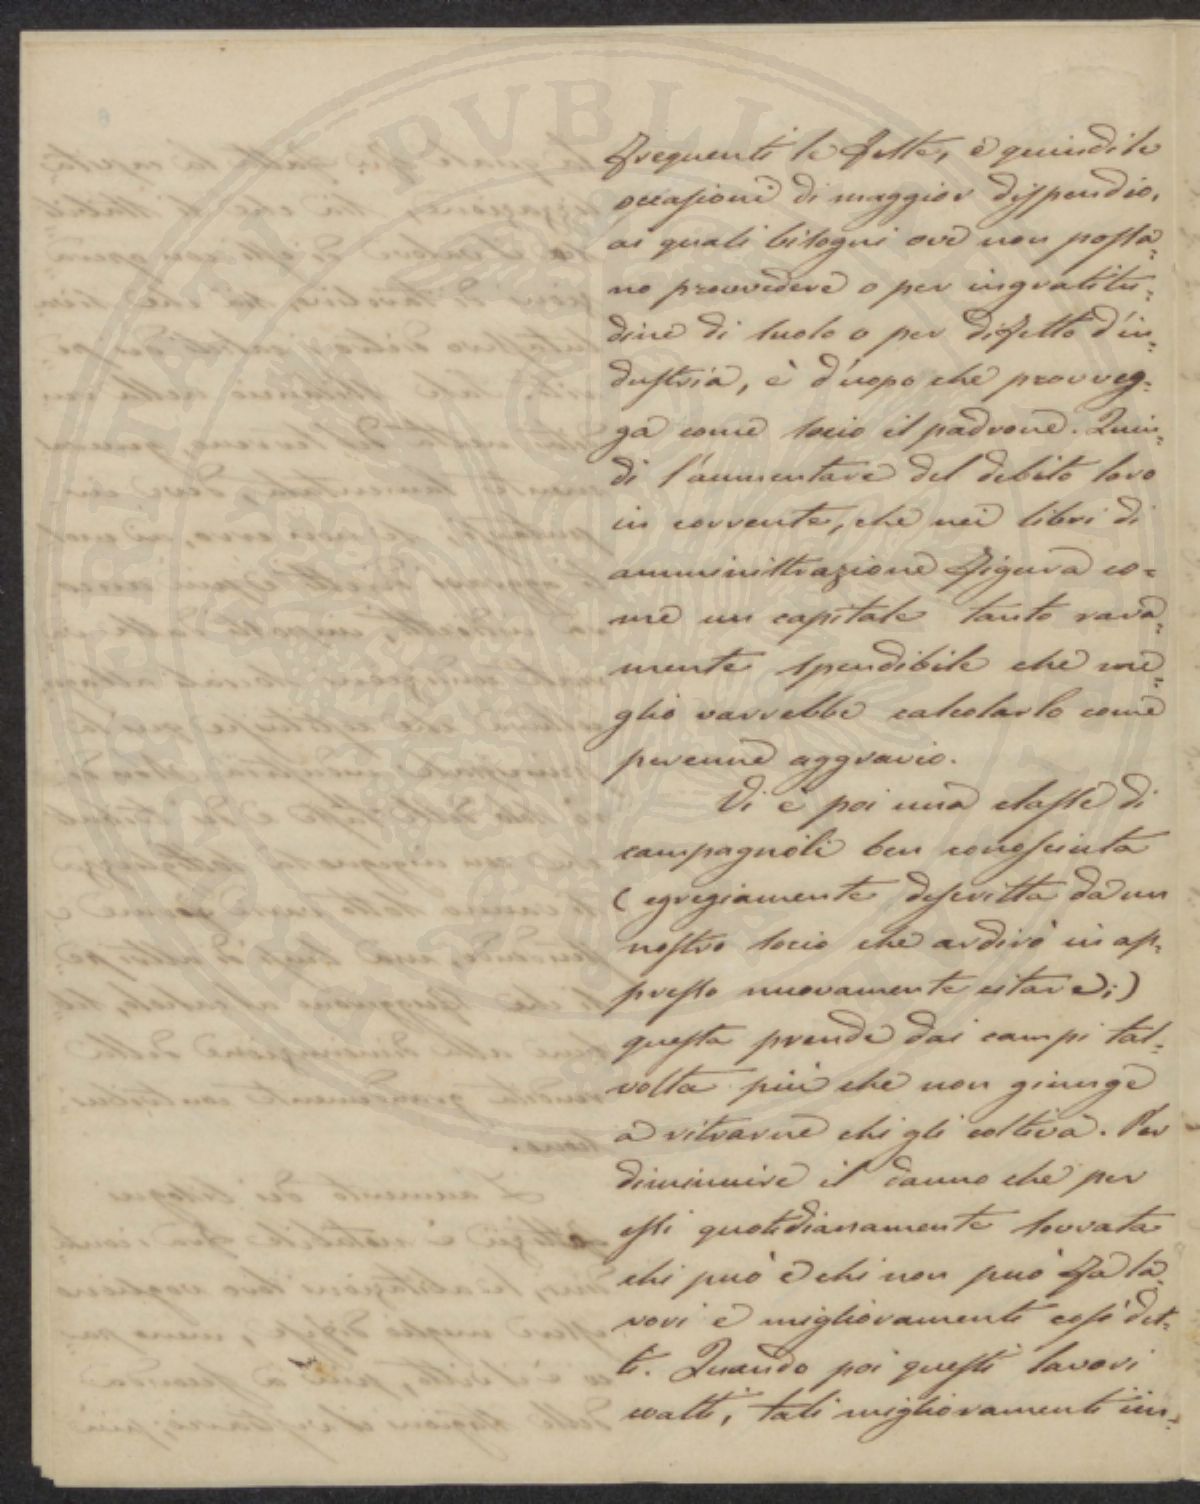 frequenti le feste, e quindi le
occasioni di maggior dispendio,
ai quali bisogni ove non possa=
no provvedere o per ingratitu=
dine di suolo o per difetto d'in=
dustria, è d'uopo che provveg=
ga come socio il padrone. Quin=
di l'aumentare del debito loro
in corrente, che nei libri di
amministrazione figura co=
me un capitale tanto rara=
mente spendibile che me=
glio varrebbe calcolarlo come
perenne aggravio.
Vi è poi una classe di
campagnoli ben conosciuta
(egregiamente descritta da un
nostro socio che ardirò in ap=
presso nuovamente citare;)
questa prende dai campi tal=
volta più che non giunge
a ritrarne chi gli coltiva. Per
diminuire il danno che per
essi quotidianamente sovrasta
chi può e chi non può fa la=
vori e miglioramenti così det=
ti. Quando poi questi lavori
tali miglioramenti
PVBLI